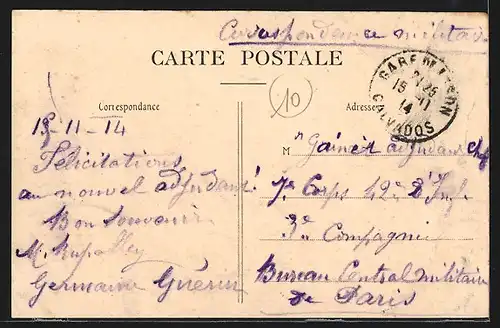 Correspondance militaire
CARTE POSTALE
GARE DE
21 25
15 11
14
CALVADOS
10
Correspondance
Adresse
15-11-14
Félicitations
au nouvel adjudant !
Bon souvenir
M.
Germaine Guérin
M r adjudant chef
7e Corps 42e d'Inf.
3e Compagnie
Bureau Central militaire
de Paris